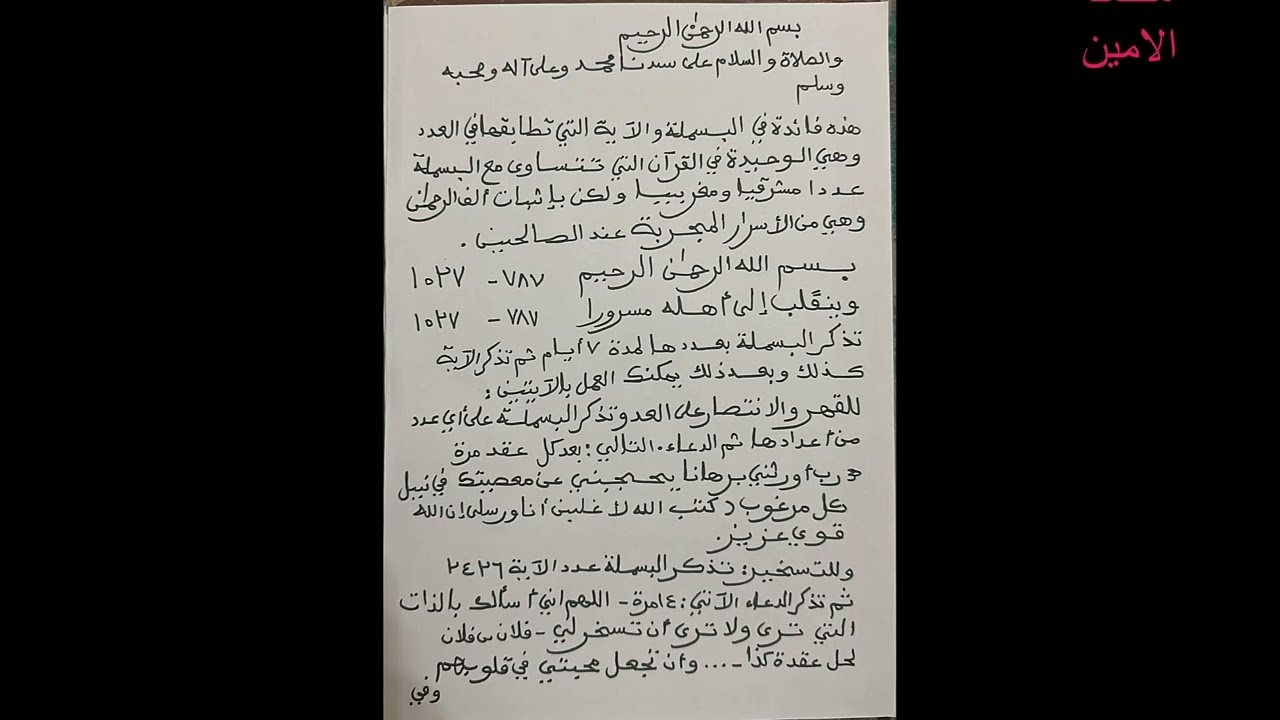 الامين
بسم الله الرحمٰن الرحيم
والصلاة والسلام على سيدنا محمد وعلى آله وصحبه
وسلم
هذه فائدة في البسملة والآية التي تطابقها في العدد
وهي الوحيدة في القرآن التي تتساوى مع البسملة
عددا مشرقيا ومغربيا ولكن بإثبات ألف الرحمٰن
وهي من الأسرار المجربة عند الصالحين .
بسم الله الرحمٰن الرحيم ٧٨٧ - ١٠٢٧
وينقلب إلى أهله مسرورا ٧٨٧ - ١٠٢٧
تذكر البسملة بعددها لمدة ٧ أيام ثم تذكر الآية
كذلك وبعد ذلك يمكنك العمل بالآيتين :
للقهر والانتصار على العدو تذكر البسملة على أي عدد
من أعدادها ثم الدعاء التالي : بعد كل عقد مرة
رب أورثني برهانا يحجبني عن معصيتك في نيل
كل مرغوب كتب الله لأغلبن أنا ورسلي إن الله
قوي عزيز.
وللتسخير : تذكر البسملة عدد الآية ٢٤٢٦
ثم تذكر الدعاء الآتي : ١٤ مرة - اللهم اني أسألك بالذات
التي ترى ولا ترى أن تسخر لي - فلان بن فلان
لحل عقدة كذا - ... وأن تجعل محبتي في قلوبهم
وفي